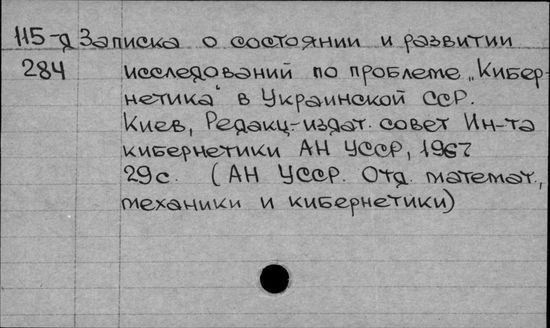 115-д Записка о состоянии и развитии
284 исследований по проблеме „Кибер-
нетика“ в Украинской ССР.
Киев, Редакц-издат. совет Ин-та
кибернетики АН УССР, 1967
29с. (АН УССР. Отд. математ.,
механики и кибернетики)